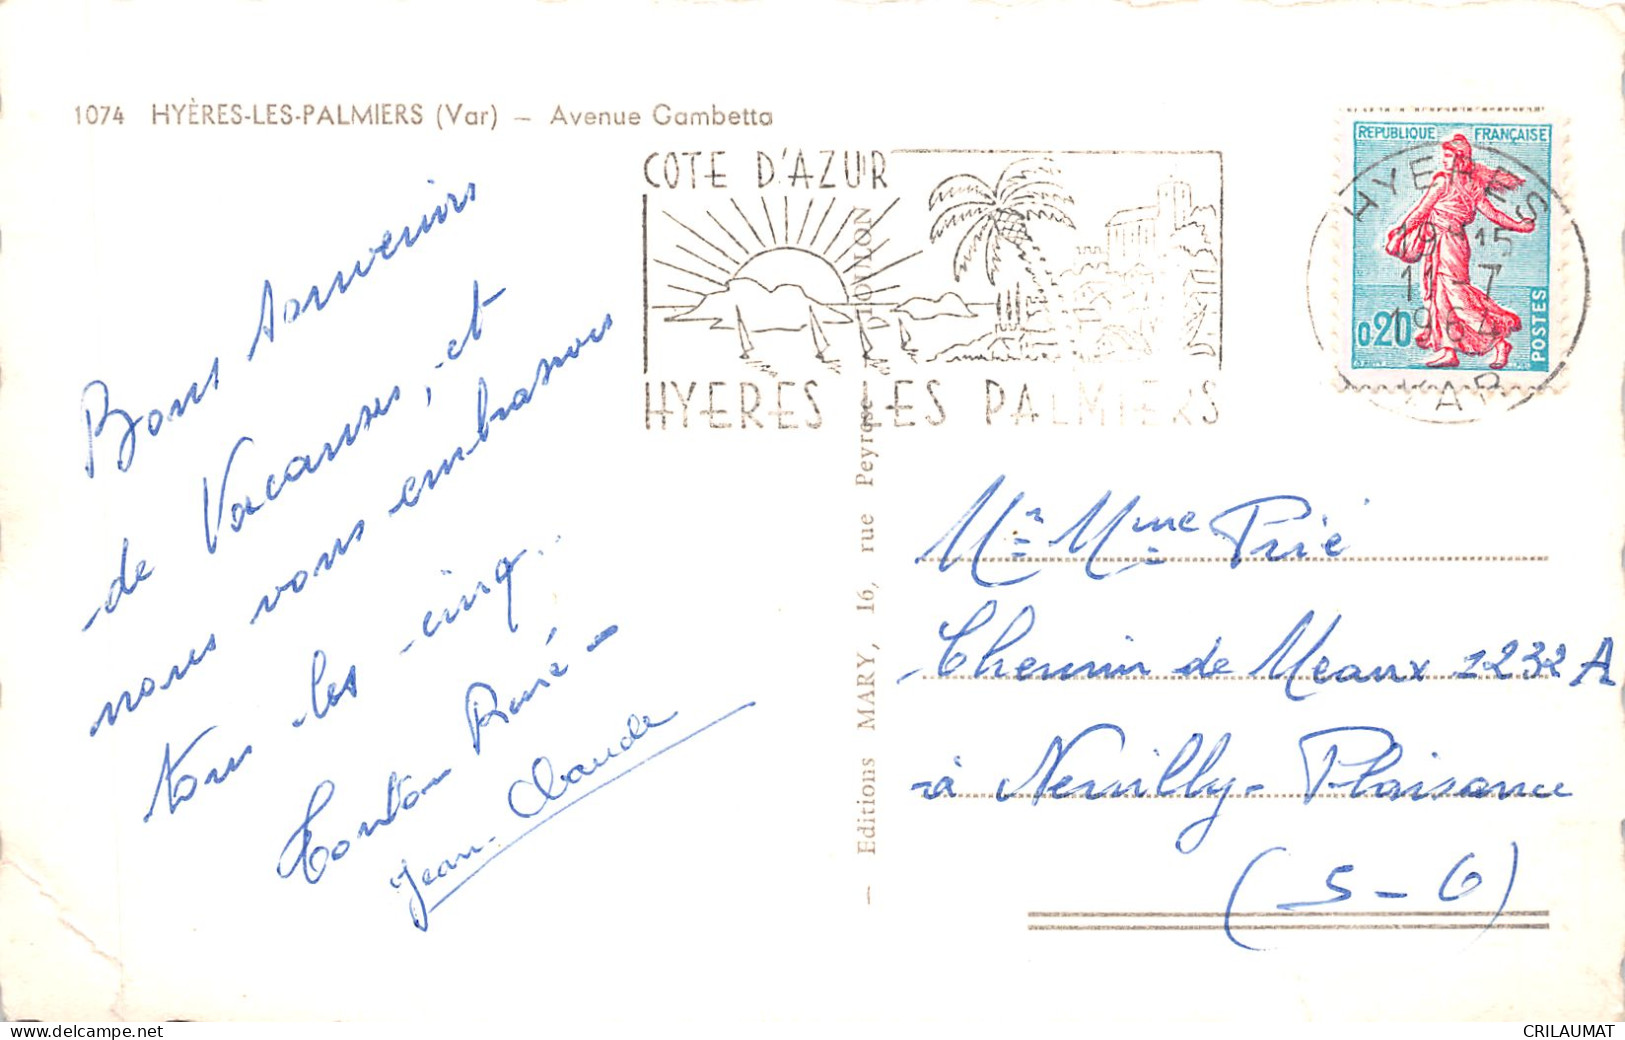 1074 HYÈRES-LES-PALMIERS (Var) – Avenue Gambetta
Bons souvenirs
de Vacances, et
nous vous embrassons
tous les cinq...
Tonton René –
Jean-Claude
COTE D'AZUR
HYERES LES PALMIERS
REPUBLIQUE FRANÇAISE
0.20
POSTES
HYERES
19H15
11-7
1964
VAR
– Editions MARY, 16, rue Peyresc – TOULON
Mr Mme Prié
Chemin de Meaux 1232 A
à Neuilly-Plaisance
(S-O)
www.delcampe.net
CRILAUMAT